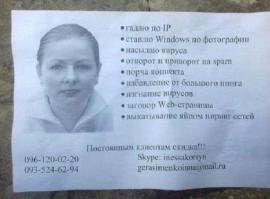 гадаю по IP
ставлю Windows по фотографии
насылаю вируса
отворот и приворот на spam
порча коннекта
избавление от большого пинга
изгнание вирусов
заговор Web-страницы
выкатывание яйцом пиринг сетей
Постоянным клиентам скидка!!!
096-120-02-20
Skype: inessakorsyn
093-524-62-94
gerasimenkoinna@mail.ru